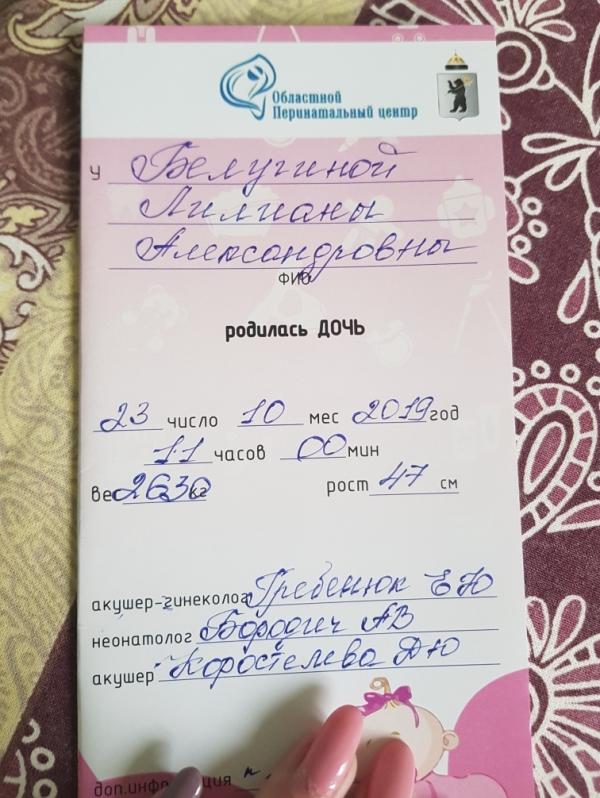 Областной
Перинатальный центр
у Белугиной
Лилианы
Александровны
ФИО
родилась ДОЧЬ
23 число 10 мес 2019 год
11 часов 00 мин
ве 2630 кг рост 47 см
акушер-гинеколог Гребенюк ЕЮ
неонатолог Бородич АВ
акушер Коростелева ДЮ